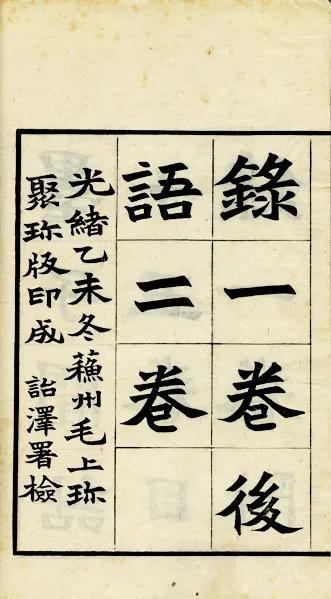 錄一卷後
語二卷
光緒乙未冬蘇州毛上珍
聚珍版印成 詒澤署檢